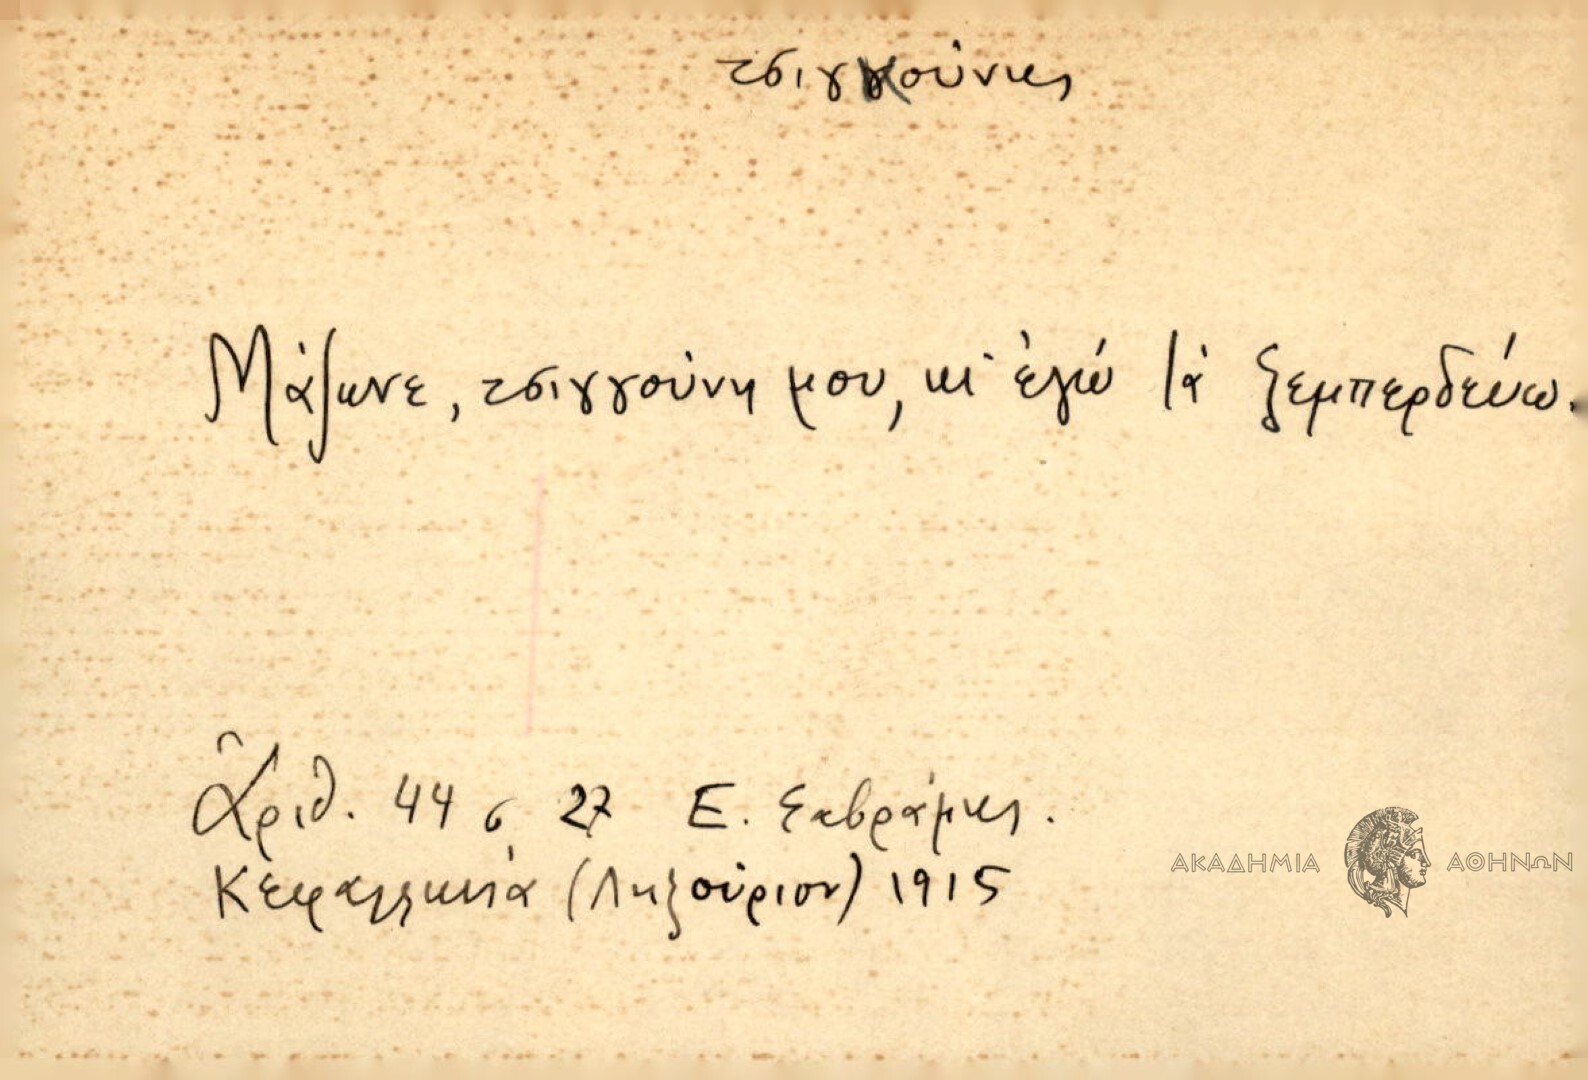 τσιγκούνης
Μάζωνε, τσιγγούνη μου, κι' ἐγὼ θὰ ξεμπερδεύω.
Ἀριθ. 44 σ. 27 Ε. Σαβράμης.
Κεφαλληνία (Ληξούριον) 1915
ΑΚΑΔΗΜΙΑ ΑΘΗΝΩΝ